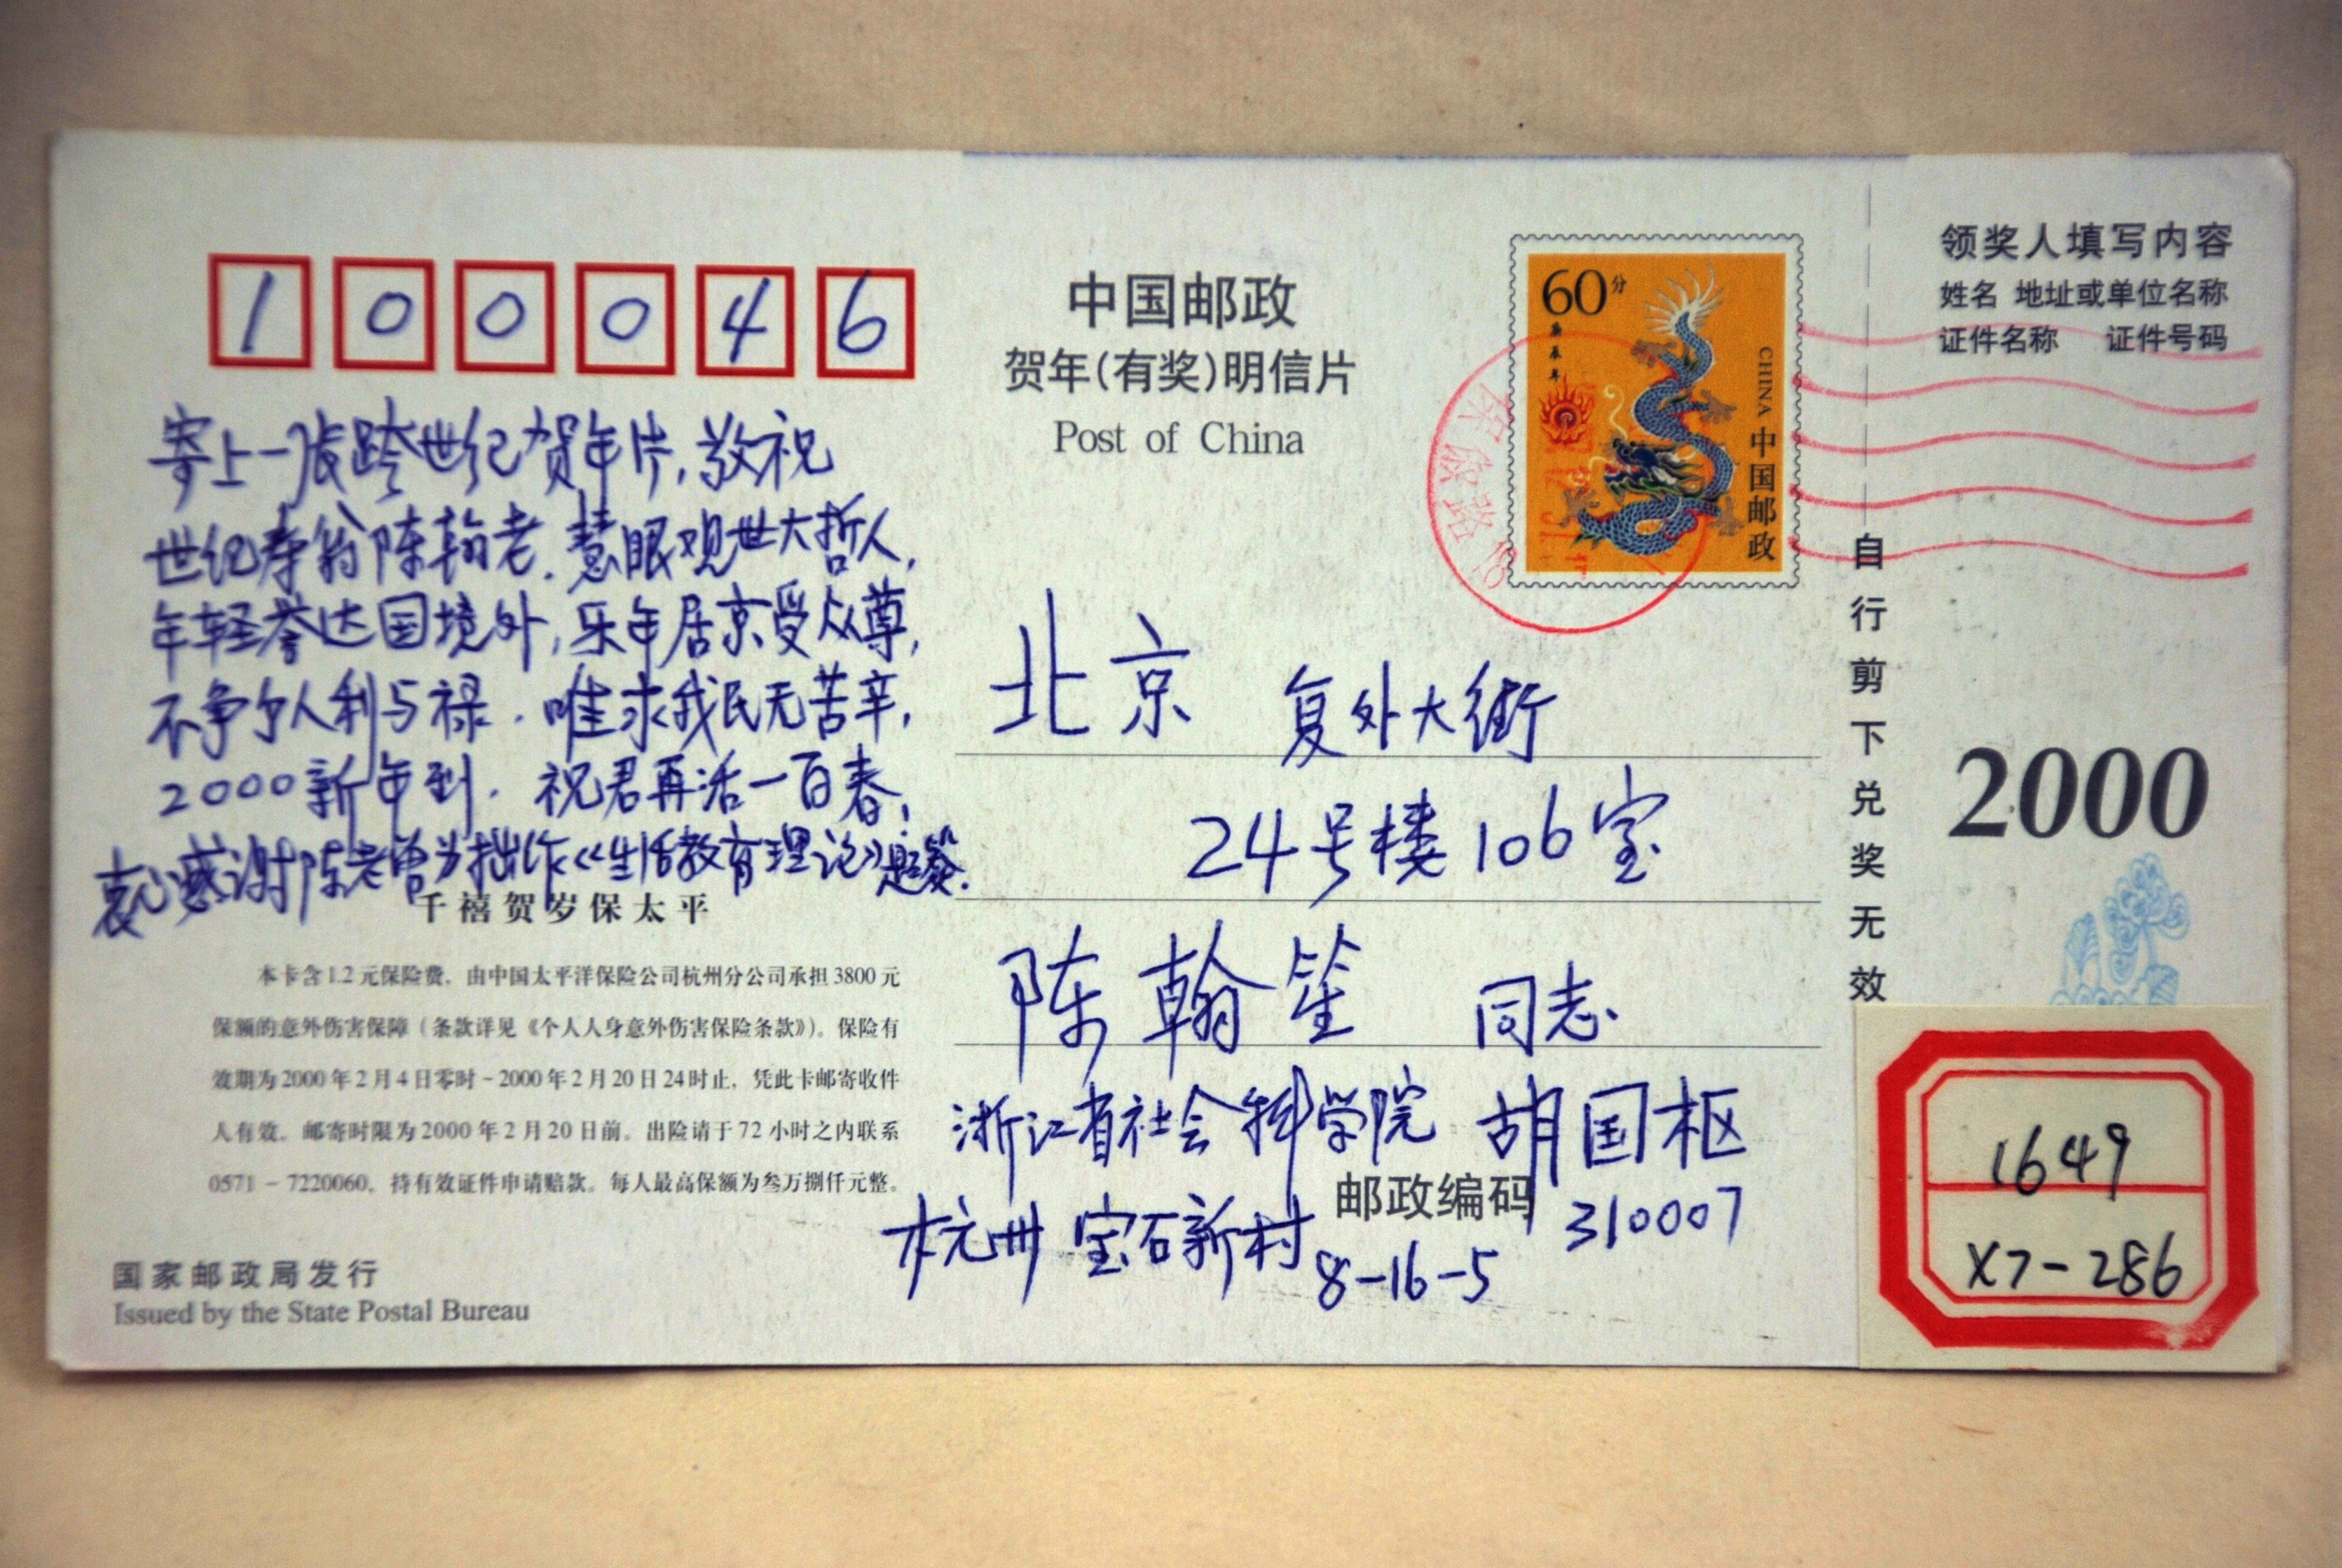 100046
寄上一张跨世纪贺年片,敬祝
世纪寿翁陈翰老.慧眼观世大哲人,
年轻誉达国境外,乐年居京受众尊,
不争个人利与禄.唯求我民无苦辛,
2000新年到.祝君再活一百春,
衷心感谢陈老曾为拙作《生活教育理论》题签.
千禧贺岁保太平
本卡含1.2元保险费,由中国太平洋保险公司杭州分公司承担3800元
保额的意外伤害保障(条款详见《个人人身意外伤害保险条款》)。保险有
效期为2000年2月4日零时-2000年2月20日24时止,凭此卡邮寄收件
人有效。邮寄时限为2000年2月20日前。出险请于72小时之内联系
0571-7220060,持有效证件申请赔款。每人最高保额为叁万捌仟元整。
国家邮政局发行
Issued by the State Postal Bureau
中国邮政
贺年(有奖)明信片
Post of China
60分
庚辰年
CHINA 中国邮政
北京 复外大街
24号楼106室
陈翰笙 同志
浙江省社会科学院 胡国枢
邮政编码 310007
杭州宝石新村8-16-5
自行剪下兑奖无效
领奖人填写内容
姓名 地址或单位名称
证件名称 证件号码
2000
1649
X7-286